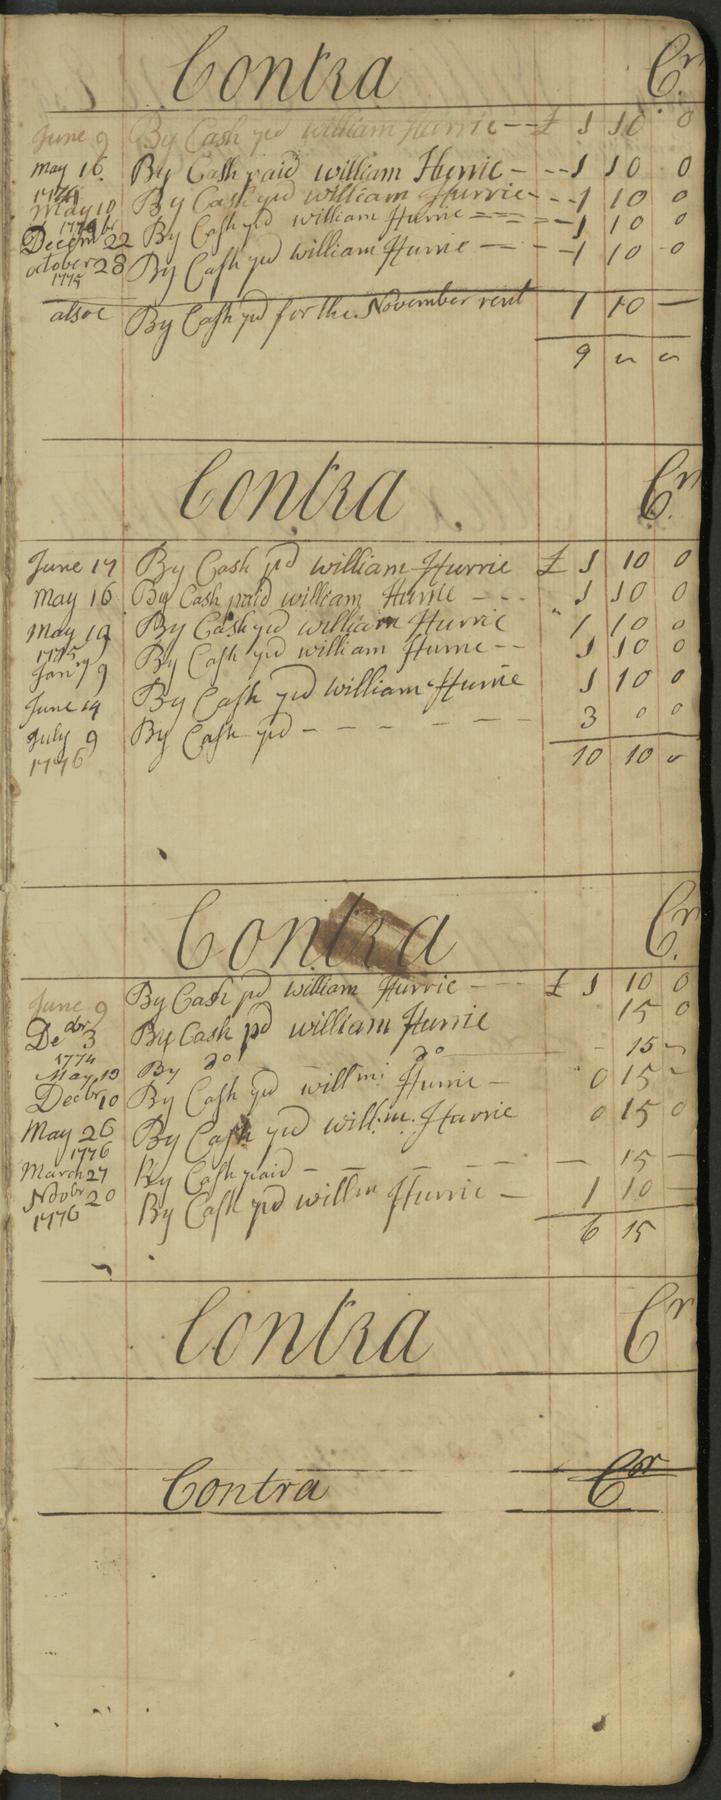 Contra Cr
June 9 By Cash pd william Hurrie -- £ 1 10 0
may 16 By Cash paid william Hurrie - -- 1 10 0
1774
may 10 By Cash pd william Hurrie - -- 1 10 0
1774
Decembr 22 By Cash pd william Hurrie 1 10 0
october 28 By Cash pd william Hurrie - -- 1 10 0
1775
alsoe By Cash pd for the November rent 1 10 —
9 0 0
Contra Cr
June 17 By Cash pd william Hurrie £ 1 10 0
May 16 By Cash paid william Hurrie - - - 1 10 0
May 19 By Cash pd william Hurrie " 1 10 0
1775
Janry 9 By Cash pd william Hurrie -- 1 10 0
June 14 By Cash pd william Hurrie 1 10 0
July 9 By Cash pd - - - - - - 3 0 0
1776
10 10 0
Contra Cr
June 9 By Cash pd william Hurrie - - - £ 1 10 0
Decbr 3 By Cash pd william Hurrie 15 0
1774
By do do - - 15 -
May 19 By Cash pd willm: Hurrie - 0 15 -
Decbr 10
May 26 By Cash pd willm: Hurrie 0 15 0
1776
March 27 By Cash paid — — — — — 15 —
Nobr 20 By Cash pd willm Hurrie - 1 10 —
1776
6 15
Contra Cr
Contra Cr